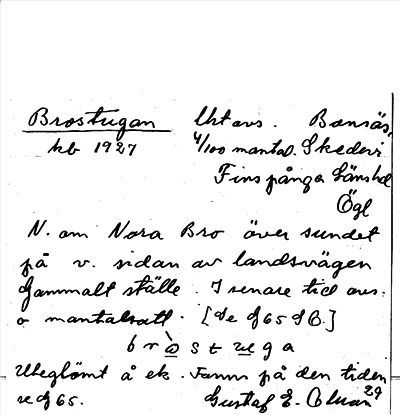 Brostugan Utavs. Bonsäs,
kb 1927 4/100 mantal. Skedevi
Finspånga Länshd
Ögl
N. om Nora Bro över sundet
på v. sidan av landsvägen
Gammalt ställe. I senare tid avs.
o mantalsatt. [Se G65 SB.]
b r o s t u g a
Uteglömt å ek. Fanns på den tiden
se G65. Gustaf E. 29